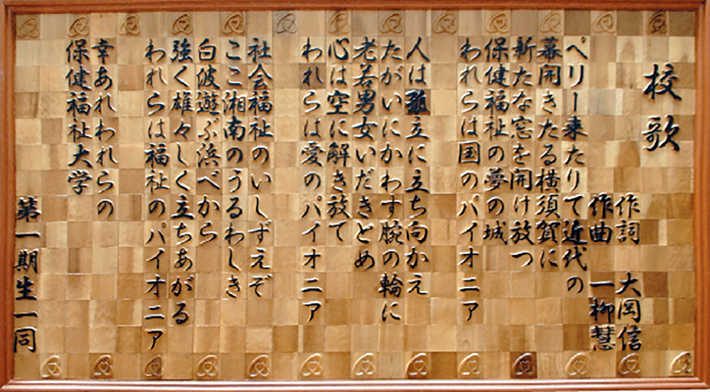 校歌
作詞 大岡信
作曲 一柳慧
ペリー来たりて近代の
幕開きたる横須賀に
新たな窓を開け放つ
保健福祉の夢の城
われらは国のパイオニア
人は立に立ち向かえ
たがいにかわす腕の輪に
老若男女いだきとめ
心は空に解き放て
われらは愛のパイオニア
社会福祉のいしずえぞ
ここ湘南のうるわしき
白波遊ぶ浜べから
強く雄々しく立ちあがる
われらは福祉のパイオニア
幸あれわれらの
保健福祉大学
第一期生一同